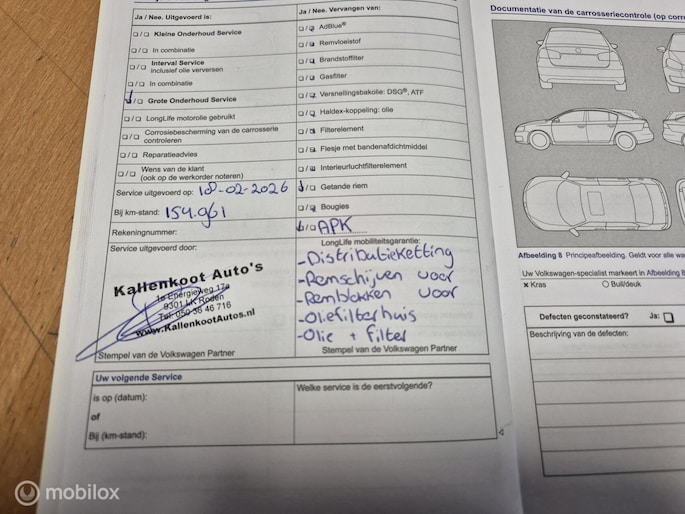 Ja / Nee. Uitgevoerd is:
Kleine Onderhoud Service
In combinatie
Interval Service
Inclusief olie verversen
In combinatie
Grote Onderhoud Service
LongLife motorolie gebruikt
Corrosiebescherming van de carrosserie
controleren
Reparatieadvies
Wens van de klant
(ook op de werkorder noteren)
Service uitgevoerd op: 18-02-2026
Bij km-stand: 154.961
Rekeningnummer:
Service uitgevoerd door:
Kallenkoot Auto's
1e Energieweg 17a
9301 LK Roden
Tel: 050 36 46 716
www.KallenkootAutos.nl
Stempel van de Volkswagen Partner
Ja / Nee. Vervangen van:
AdBlue®
Remvloeistof
Brandstoffilter
Gasfilter
Versnellingsbakolie: DSG®, ATF
Haldex-koppeling: olie
Filterelement
Flesje met bandenafdichtmiddel
Interieurluchtfilterelement
Getande riem
Bougies
APK
LongLife mobiliteitsgarantie:
-Distributieketting
-Remschijven voor
-Remblokken voor
-Oliefilterhuis
-Olie + filter
Stempel van de Volkswagen Partner
Uw volgende Service
is op (datum):
of
Bij (km-stand):
Welke service is de eerstvolgende?
Documentatie van de carrosseriecontrole (op
Afbeelding 8 Principeafbeelding. Geldt voor alle
Uw Volkswagen-specialist markeert in Afbeelding 8
x Kras
O Buil/deuk
Defecten geconstateerd? Ja:
Beschrijving van de defecten:
mobilox